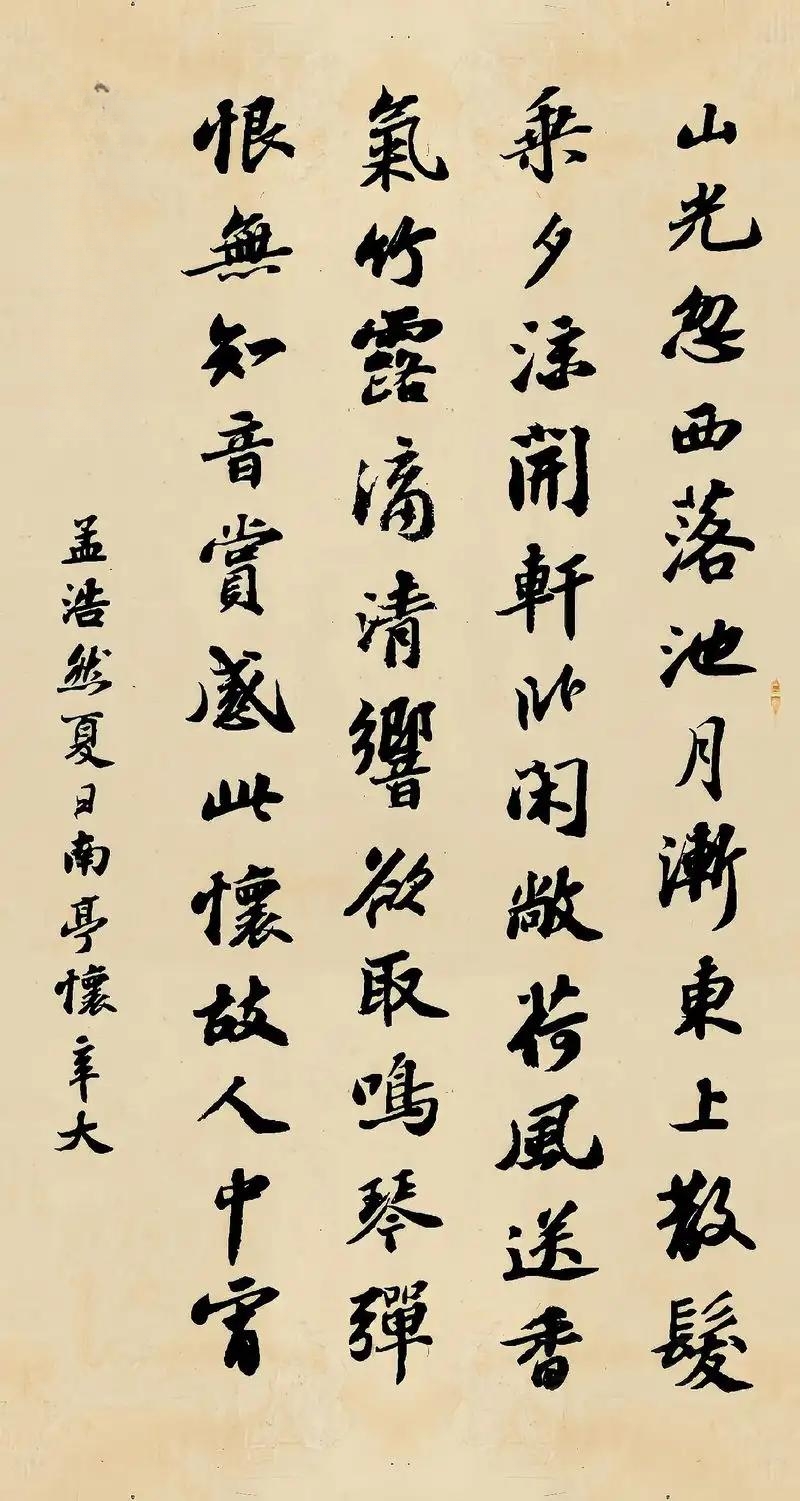 山光忽西落池月漸東上散髮
乘夕涼開軒臥閑敞荷風送香
氣竹露滴清響欲取鳴琴彈
恨無知音賞感此懷故人中宵
孟浩然夏日南亭懷辛大